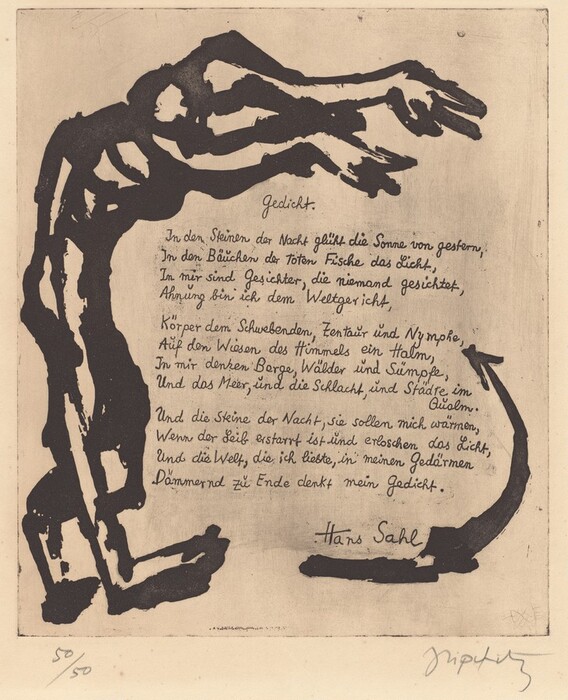 Gedicht.
In den Steinen der Nacht glüht die Sonne von gestern,
In den Bäuchen der toten Fische das Licht,
In mir sind Gesichter, die niemand gesichtet,
Ahnung bin ich dem Weltgericht,
Körper dem Schwebenden, Zentaur und Nymphe,
Auf den Wiesen des Himmels ein Halm,
In mir denken Berge, Wälder und Sümpfe,
Und das Meer, und die Schlacht, und Städte im
Qualm.
Und die Steine der Nacht, sie sollen mich wärmen,
Wenn der Leib erstarrt ist und erloschen das Licht,
Und die Welt, die ich liebte, in meinen Gedärmen
Dämmernd zu Ende denkt mein Gedicht.
Hans Sahl
50/50